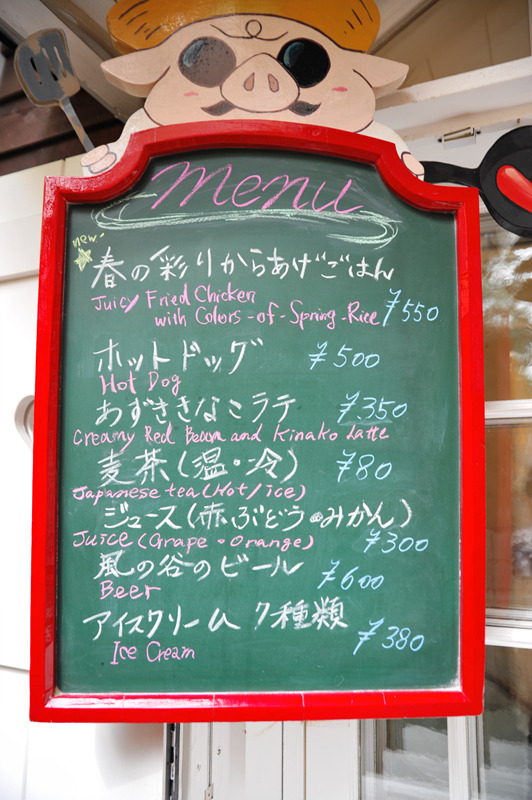 menu
new.
春の彩りからあげごはん
Juicy Fried Chicken
with Colors-of-Spring-Rice ¥550
ホットドッグ ¥500
Hot Dog
あずききなこラテ ¥350
Creamy Red Bean and Kinako Latte
麦茶(温・冷) ¥80
Japanese tea (Hot/ice)
ジュース(赤ぶどう・みかん)
Juice (Grape・Orange) ¥300
風の谷のビール ¥600
Beer
アイスクリーム 7種類 ¥380
Ice Cream